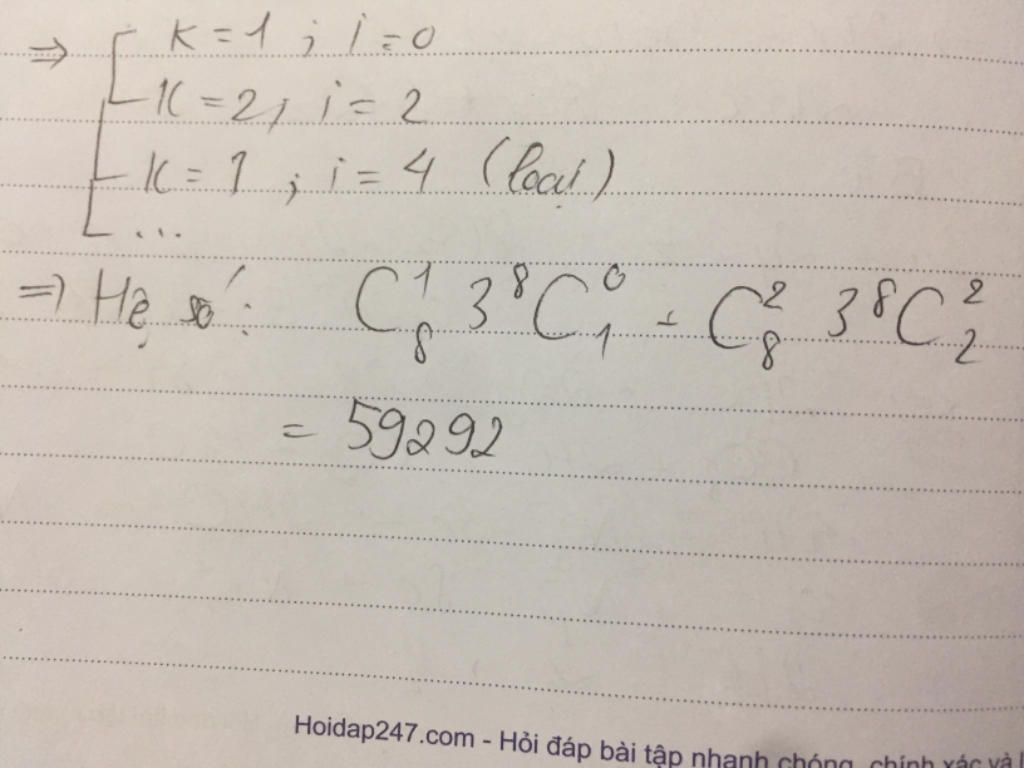 ⇒ [ K = 1 ; i = 0
K = 2 ; i = 2
K = 1 ; i = 4 (loại)
...
⇒ Hệ số: C₈¹ 3⁸ C₁⁰ + C₈² 3⁸ C₂²
= 59292
Hoidap247.com - Hỏi đáp bài tập nhanh chóng, chính xác và